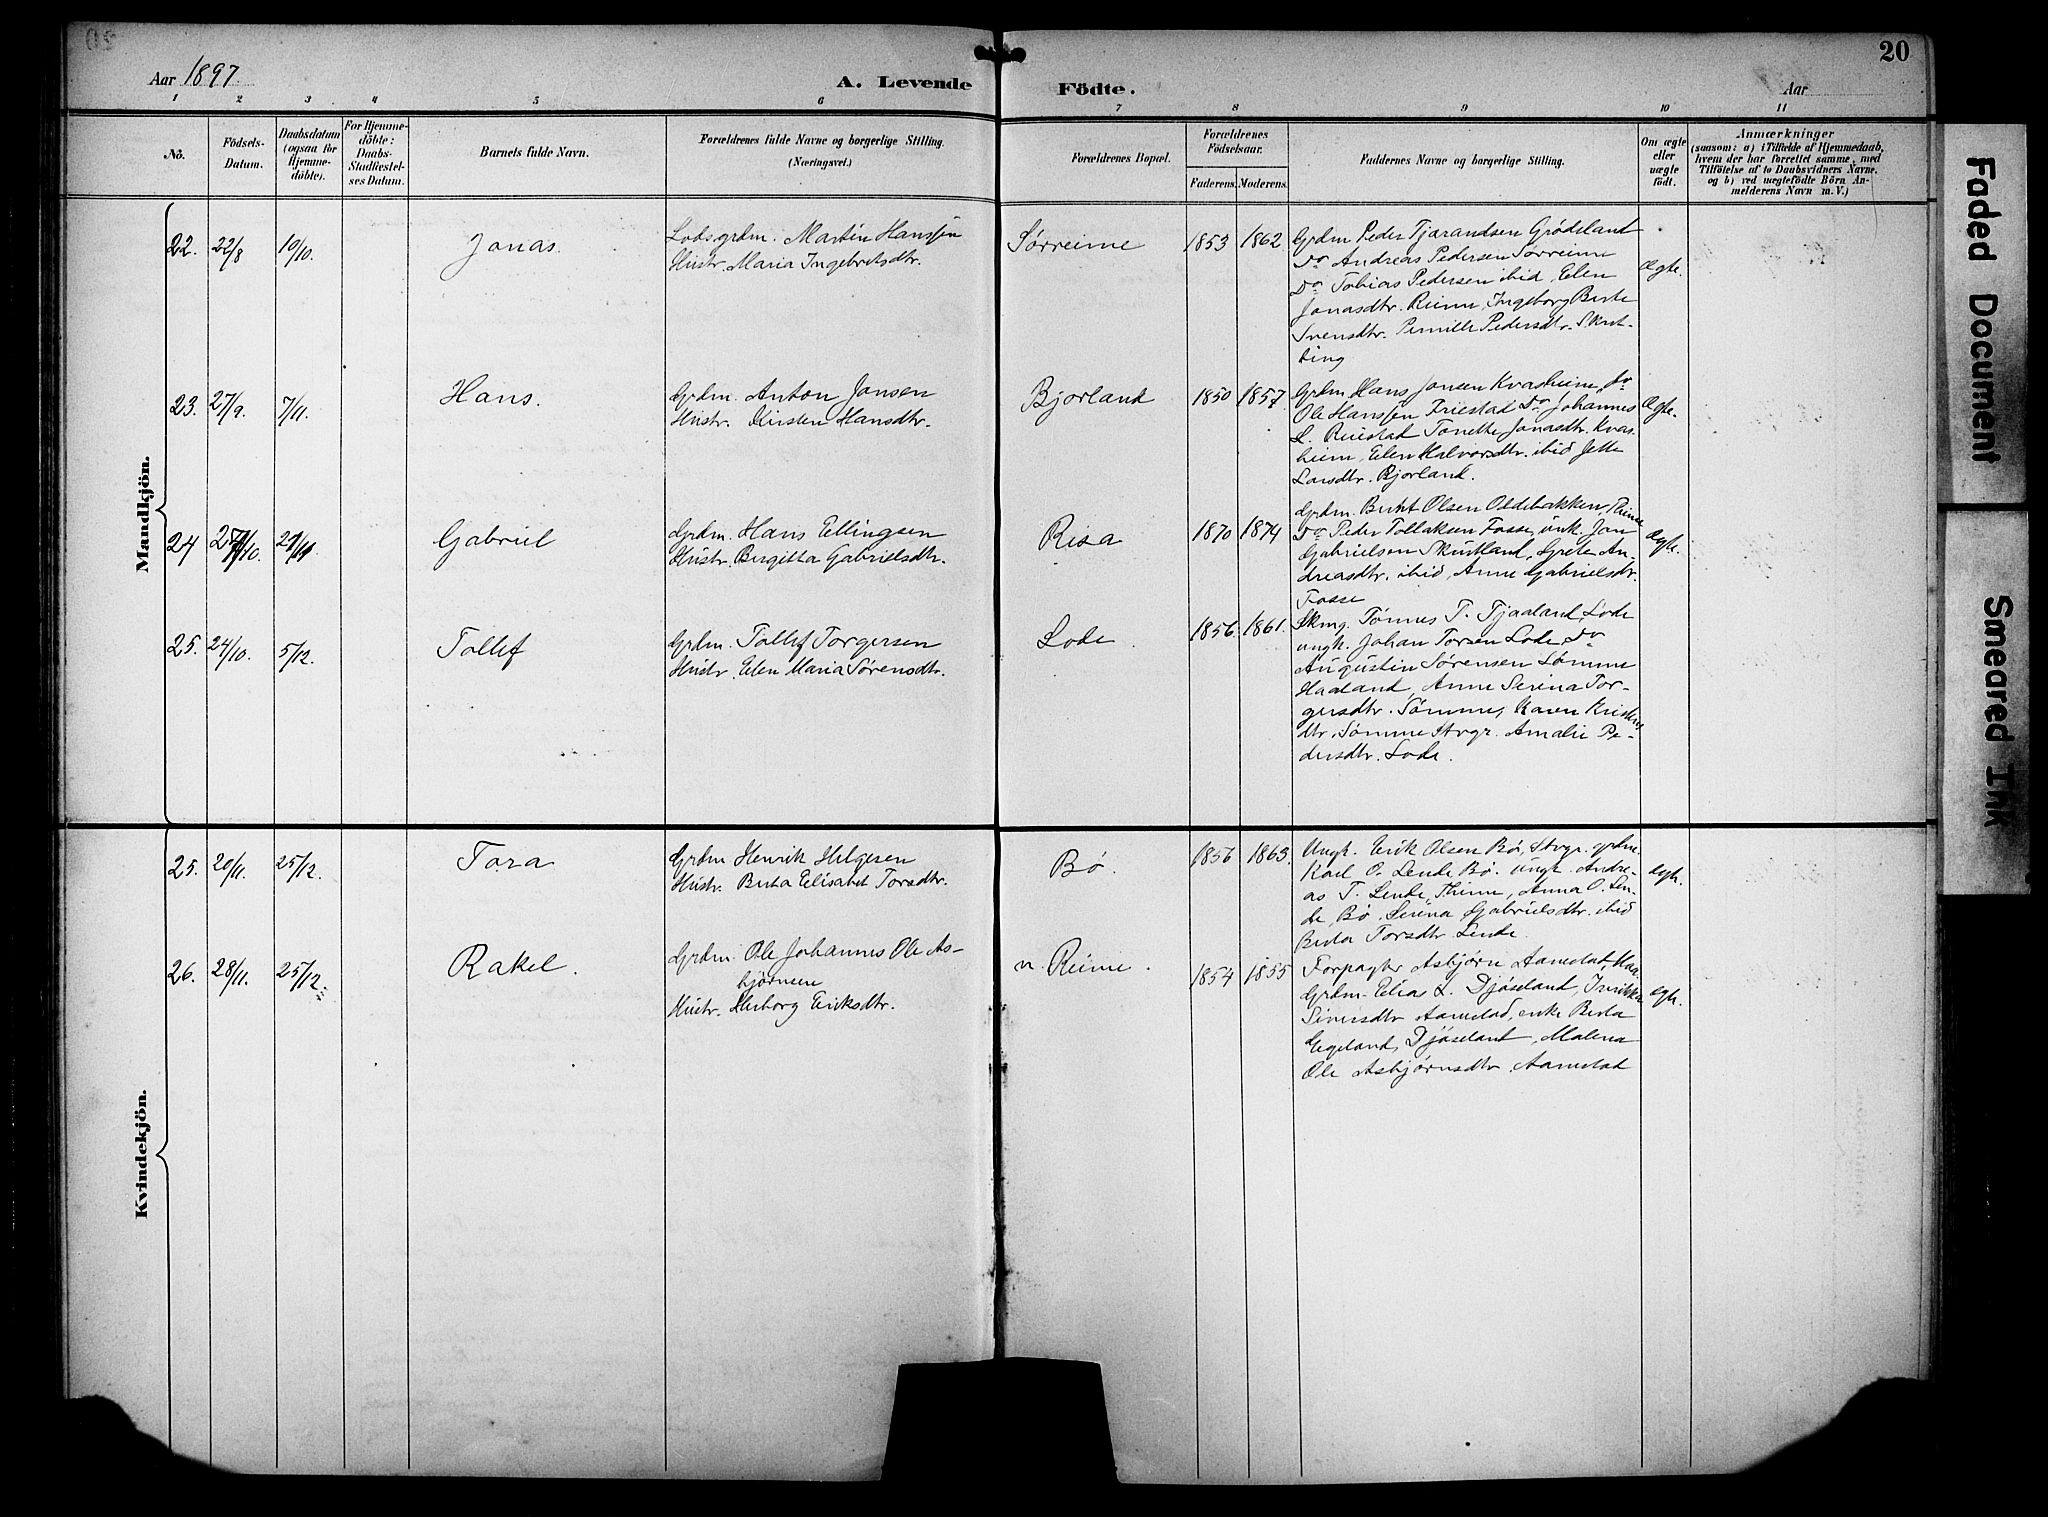 20
Aar 1897. A. Levende Födte. Aar
1 2 3 4 5 6 7 8 9 10 11
Nö. Födsels-Datum. Daabsdatum (ogsaa for Hjemmedöbte). For Hjemmedöbte: Daabs-Stadfæstelses Datum. Barnets fulde Navn. Forældrenes fulde Navne og borgerlige Stilling. (Næringsvei.) Forældrenes Bopæl. Forældrenes Födselsaar. Faderens. Moderens. Faddernes Navne og borgerlige Stilling. Om ægte eller uægte födt. Anmærkninger (saasom: a) i Tilfælde af Hjemmedaab, hvem der har forrettet samme, med Tilföielse af to Daabsvidners Navne, og b) ved uægtefödte Börn Anmelderens Navn m. V.)
Mandkjön.
22. 22/8 10/10. Jonas. Lods. grdm. Martin Hansen
Hustr. Maria Ingebretsdtr. Sørreime 1853 1862 Ægte.
Grdm Peder Tjærandsen Grødeland
Do Andreas Pedersen Sørreime
Do Tobias Pedersen ibid, Elen
Jonasdtr. Reime, Ingeborg Berte
Svensdtr. Pernille Pedersdtr. Skret-
ting
23. 27/9. 7/11. Hans. Grdm. Anton Jonsen
Hustr. Kirsten Hansdtr. Bjorland 1850 1857. Ægte.
Grdm Hans Jonsen Kvasheim, Do
Ole Hansen Friestad Do Johannes
L. Reiestad Tonette Jonasdtr. Kvas-
heim, Elen Halvorsdtr. ibid Jette
Larsdtr. Bjorland.
24 /10. Gabriel Grdm. Hans Ellingsen
Hustr. Birgitta Gabrielsdtr. Risa 1870 1874 Ægte.
Grdm. Olsen Oldebakken, Thime
Do Peder Tollaksen Fosse, unk. Jon
Gabrielsen Skretland, Grete An-
dreasdtr. ibid, Anne Gabrielsdtr.
Fosse
25. 24/10. 5/12. Tollef Grdm. Tollef Torgersen
Hustr. Elen Maria Sørensdtr. Lode 1856. 1861.
Skmg. Tønnes T. Tjaaland, Lode
ungk. Johan Torsen Lode, Do
Augustin Sørensen Sømme
Haaland, Anne Serina Tor-
gersdtr. Sømme, Karen
dtr. Sømme Stvgr. Amalie Pe-
dersdtr. Lode.
Kvindekjön.
25. 20/11. 25/12. Tora Grdm Henrik Helgesen
Hustr. Berta Elisabet Torsdtr. Bø. 1856 1863. ægt.
Ungk. Erik Olsen Bø, Stvgr. grdm.
Karl O. Lende Bø. ungk. Andre-
as T. Lende, Thime, Anna O. Len-
de, Bø. Serina Gabrielsdtr. ibid
Berta Torsdtr. Lende.
26. 28/11. 25/12. Rakel. Grdm. Ole Johannes Ole As-
bjørnsen
Hustr. Herborg Eriksdtr. n. Reime. 1854 1855 ægt.
Forpagter Asbjørn Aanestad, Haa
Grdm. Elias L. Djøseland,
Siversdtr Aanestad, enke Berta
Egeland, Djøseland, Malena
Ole Asbjørnsdtr. Aanestad
Faded Document
Smeared Ink